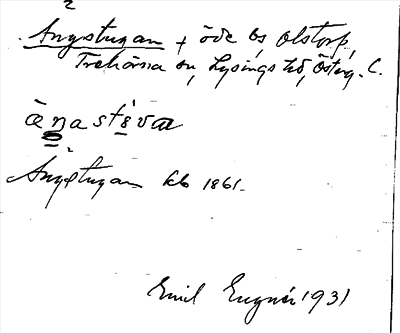 2
Ängstugan + öde, Ö, Olstorp,
Trehörna sn, Lysings hd, Österg. L.
ängastúva
Ängstugan kb 1861.
Emil 1931